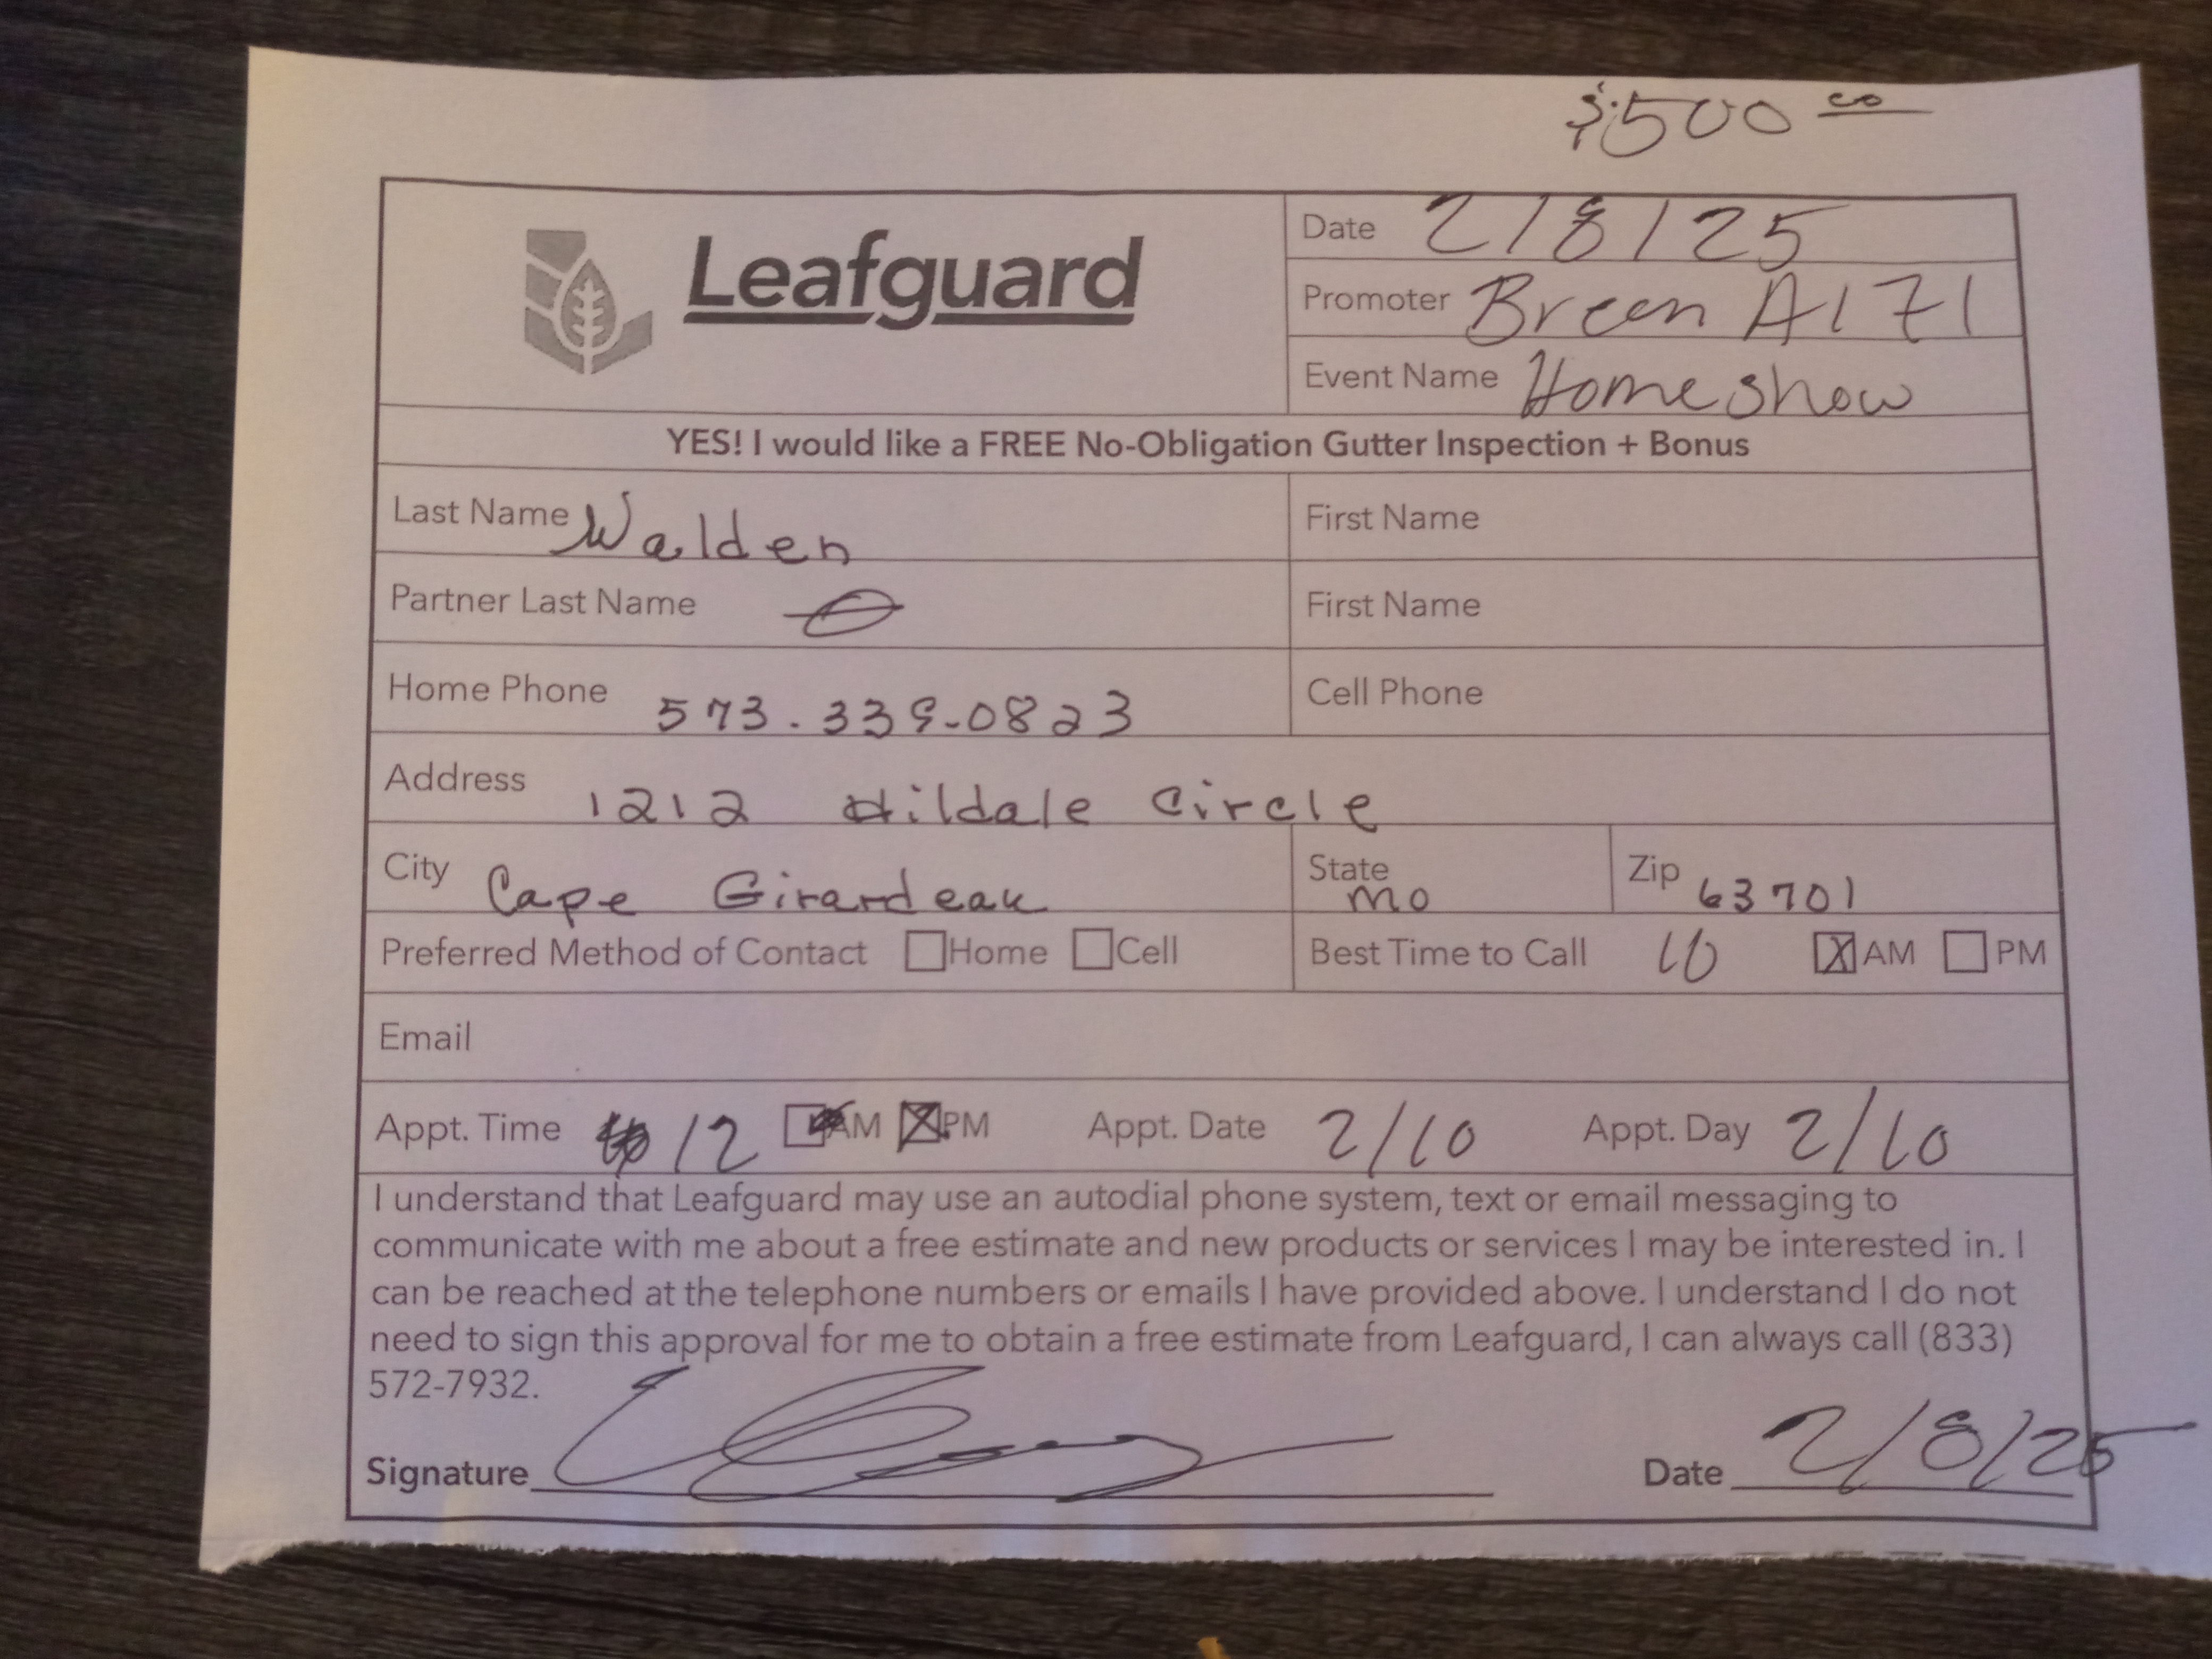 $500
Leafguard
Date 2/8/25
Promoter
Event Name Home Show
YES! I would like a FREE No-Obligation Gutter Inspection + Bonus
Last Name Walden First Name
Partner Last Name First Name
Home Phone 573.339-0823 Cell Phone
Address 1212 Hildale circle
City Cape Girardeau State mo Zip 63701
Preferred Method of Contact Home Cell Best Time to Call 10 AM PM
Email
Appt. Time 12 AM PM Appt. Date 2/10 Appt. Day 2/10
I understand that Leafguard may use an autodial phone system, text or email messaging to
communicate with me about a free estimate and new products or services I may be interested in. I
can be reached at the telephone numbers or emails I have provided above. I understand I do not
need to sign this approval for me to obtain a free estimate from Leafguard, I can always call (833)
572-7932.
Signature Date 2/8/25